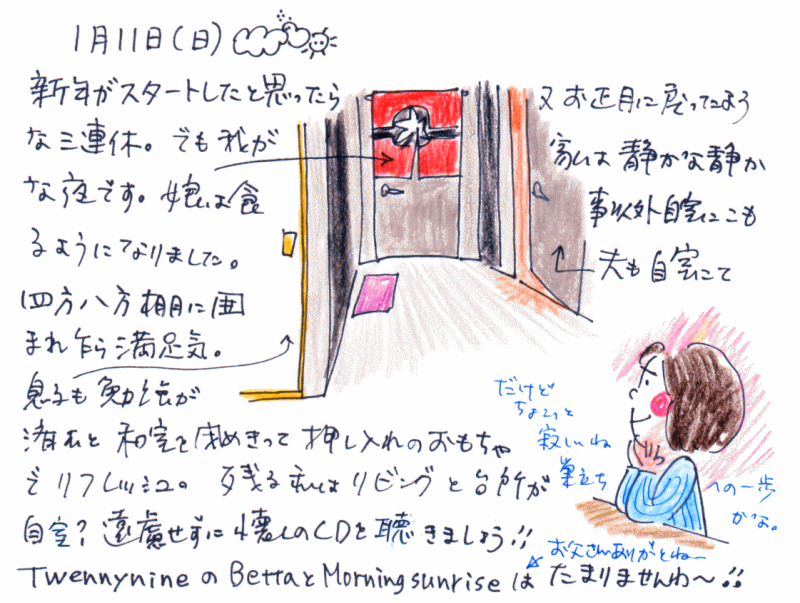 1月11日(日)
新年がスタートしたと思ったら 又お正月に戻ったよう
な三連休。でも我が 家は静かな静か
な夜です。娘は食 事以外自室にこも
るようになりました。 夫も自室にて
四方八方棚に囲
まれ乍ら満足気。
息子も勉強が
済むと和室を閉めきって押し入れのおもちゃ
でリフレッシュ。残る私はリビングと台所が
自室?遠慮せずに懐しのCDを聴きましょう!!
TwennynineのBettaとMorningsunriseはたまりませんわ〜!!
だけど
ちょこっと
寂しいね
巣立ち への一歩
かな。
お父さんありがとねー